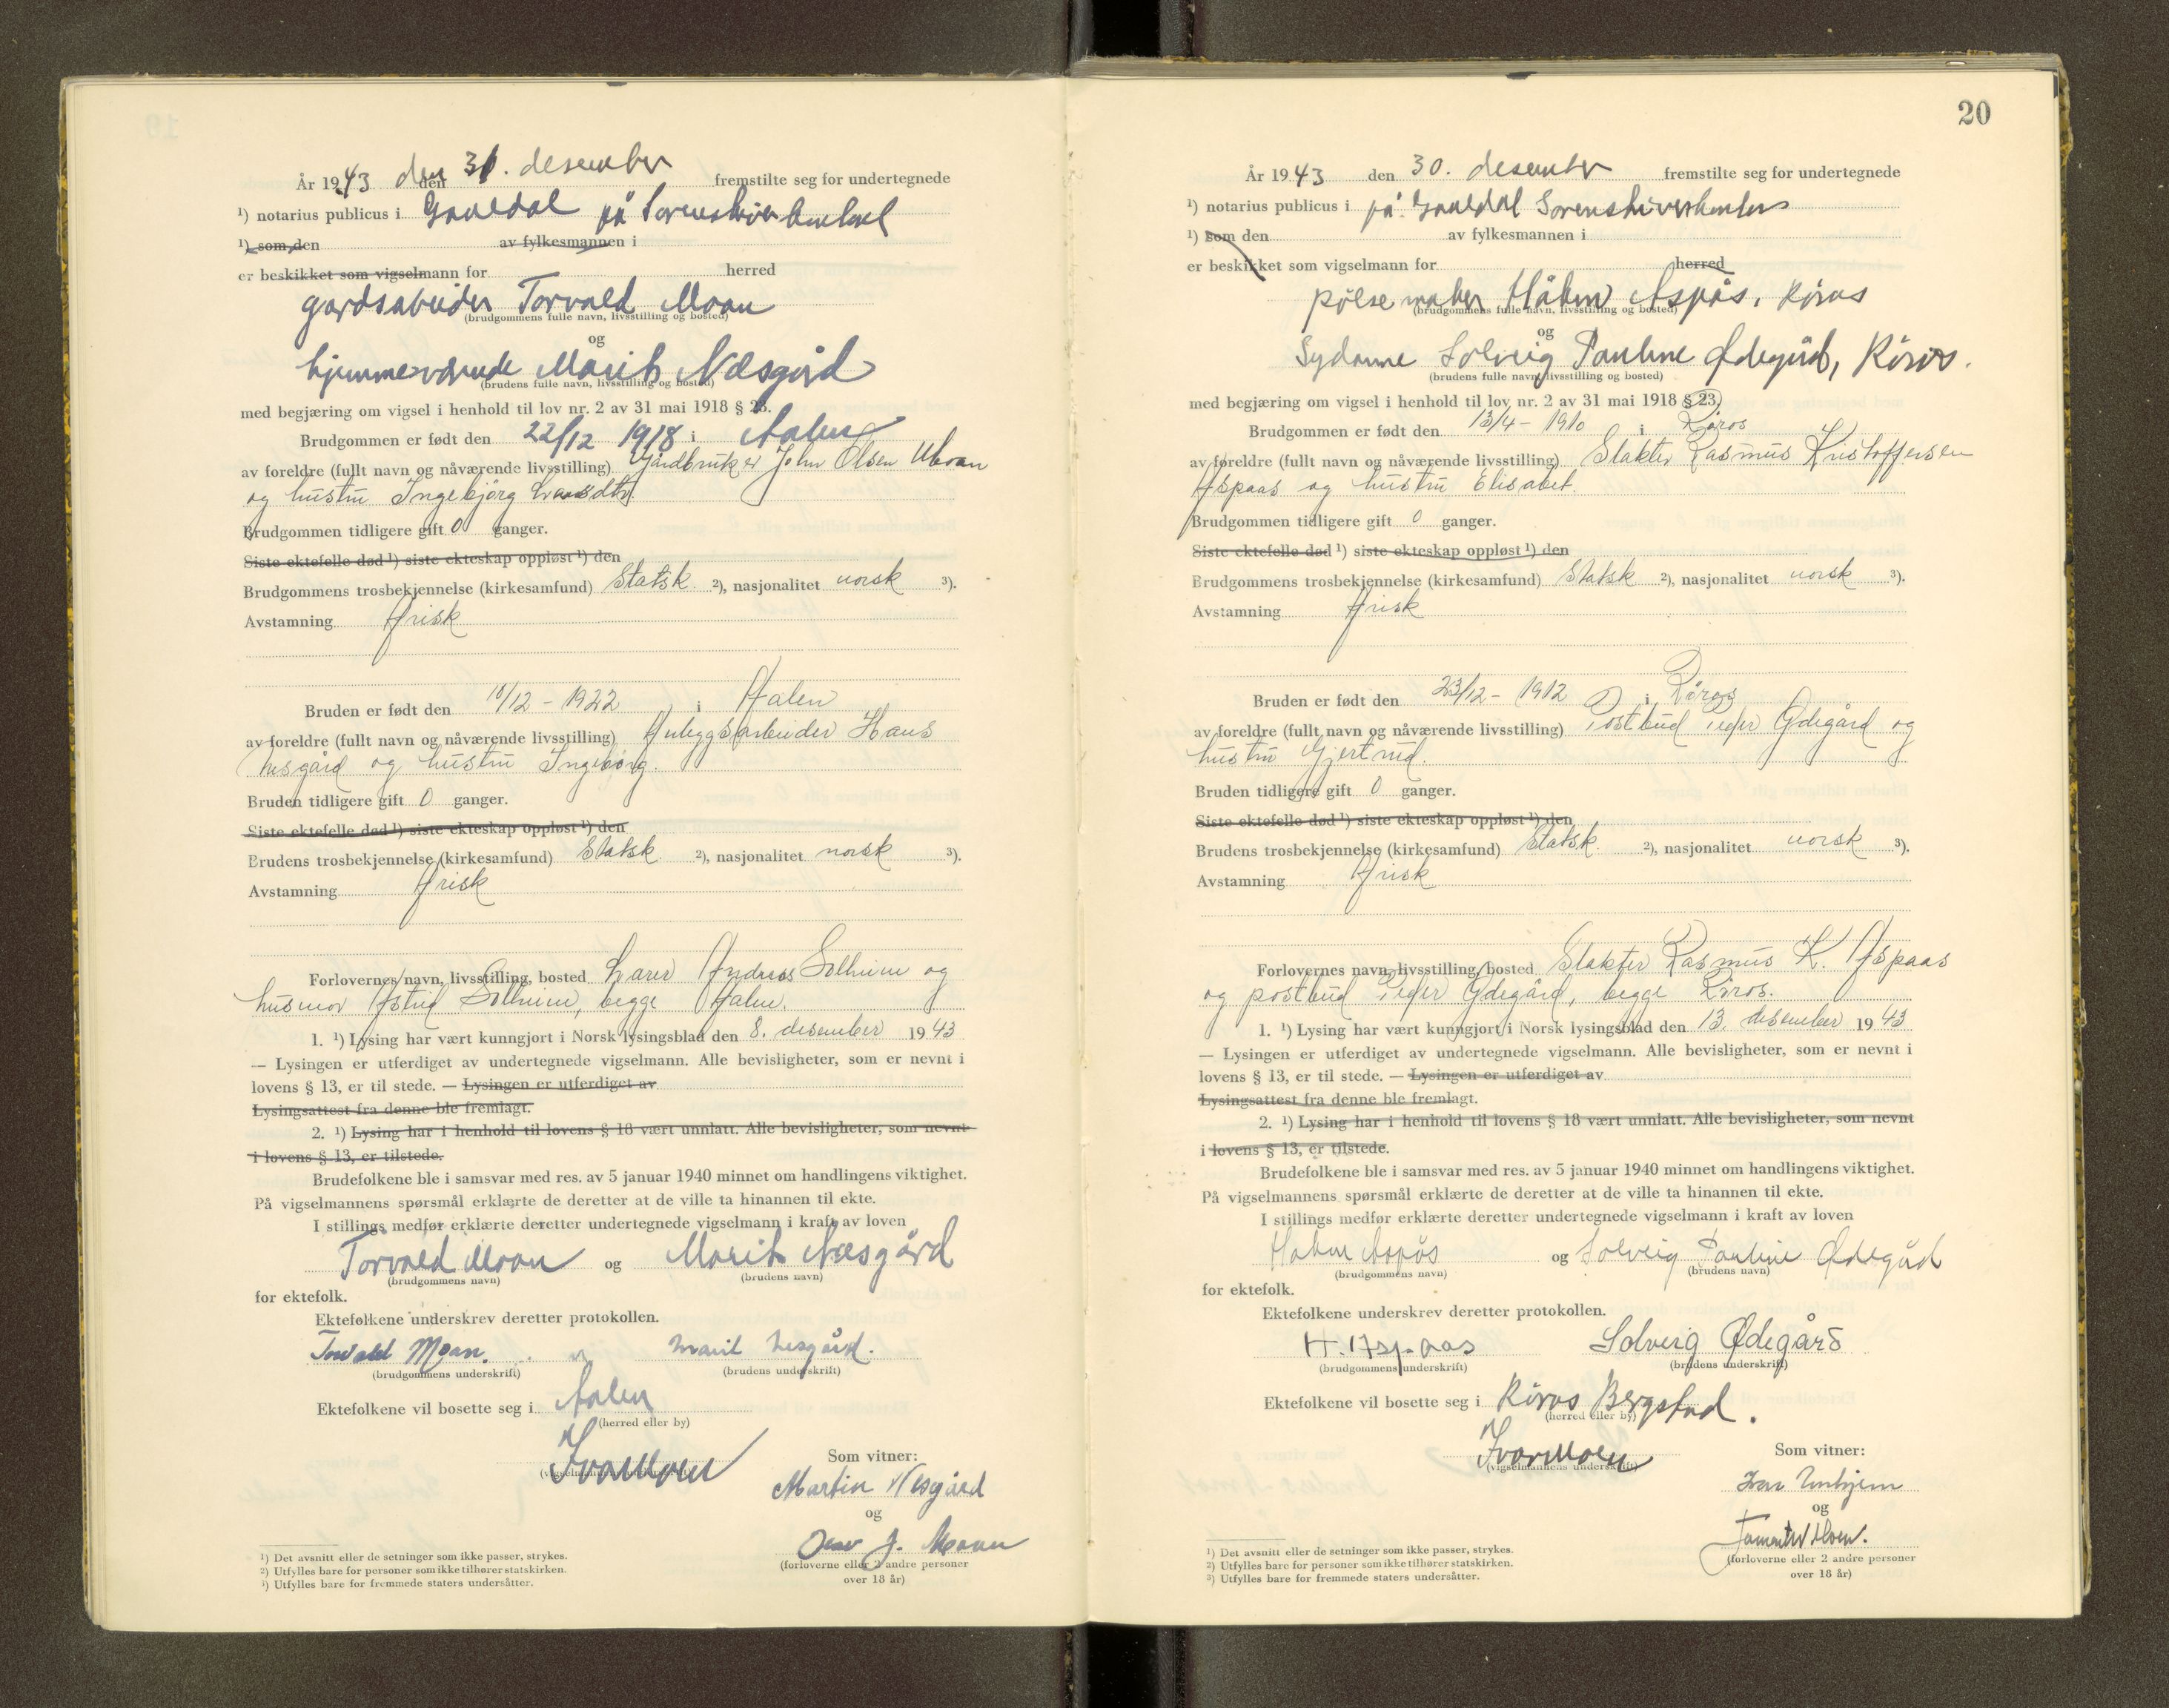 År 1943 den 31. desember fremstilte seg for undertegnede
¹) notarius publicus i Gauldal på Sorenskriverkontoret
¹) som den av fylkesmannen i
er beskikket som vigselmann for herred
gardsarbeider Torvald Moan
(brudgommens fulle navn, livsstilling og bosted)
og
hjemmeværende Marit Næsgård
(brudens fulle navn, livsstilling og bosted)
med begjæring om vigsel i henhold til lov nr. 2 av 31 mai 1918 § 23.
Brudgommen er født den 22/12 1918 i Aalen
av foreldre (fullt navn og nåværende livsstilling) Gårdbruker John Olsen Moan
og hustru Ingebjörg Larsdtr.
Brudgommen tidligere gift 0 ganger.
Siste ektefelle død ¹) siste ekteskap oppløst ¹) den
Brudgommens trosbekjennelse (kirkesamfund) Statsk ²), nasjonalitet norsk ³).
Avstamning Arisk
Bruden er født den 10/12 - 1922 i Aalen
av foreldre (fullt navn og nåværende livsstilling) Anleggsarbeider Hans
Nesgård og hustru Ingeborg.
Bruden tidligere gift 0 ganger.
Siste ektefelle død ¹) siste ekteskap oppløst ¹) den
Brudens trosbekjennelse (kirkesamfund) Statsk. ²), nasjonalitet norsk ³).
Avstamning Arisk
Forlovernes navn, livsstilling, bosted Lærer Andreas Solheim og
husmor Astrid Solheim, begge Aalen.
1. ¹) Lysing har vært kunngjort i Norsk lysingsblad den 8. desember 1943
— Lysingen er utferdiget av undertegnede vigselmann. Alle bevisligheter, som er nevnt i
lovens § 13, er til stede. — Lysingen er utferdiget av
Lysingsattest fra denne ble fremlagt.
2. ¹) Lysing har i henhold til lovens § 18 vært unnlatt. Alle bevisligheter, som nevnt
i lovens § 13, er tilstede.
Brudefolkene ble i samsvar med res. av 5 januar 1940 minnet om handlingens viktighet.
På vigselmannens spørsmål erklærte de deretter at de ville ta hinannen til ekte.
I stillings medfør erklærte deretter undertegnede vigselmann i kraft av loven
Torvald Moan og Marit Næsgård
(brudgommens navn) (brudens navn)
for ektefolk.
Ektefolkene underskrev deretter protokollen.
Torvald Moan. Marit Nesgård.
(brudgommens underskrift) (brudens underskrift)
Ektefolkene vil bosette seg i Aalen
(herred eller by)
Ivar Moen
(vigselmannens underskrift)
Som vitner:
Martin Nesgård
og
J. Moan
(forloverne eller 2 andre personer
over 18 år)
¹) Det avsnitt eller de setninger som ikke passer, strykes.
²) Utfylles bare for personer som ikke tilhører statskirken.
³) Utfylles bare for fremmede staters undersåtter.
20
År 1943 den 30. desember fremstilte seg for undertegnede
¹) notarius publicus i på Gauldal Sorenskriverkontor
¹) som den av fylkesmannen i
er beskikket som vigselmann for herred
pölsemaker Håkon Aspås, Röros
(brudgommens fulle navn, livsstilling og bosted)
og
Sydame Solveig Pauline Ødegård, Röros.
(brudens fulle navn, livsstilling og bosted)
med begjæring om vigsel i henhold til lov nr. 2 av 31 mai 1918 § 23.
Brudgommen er født den 13/4 - 1910 i Röros
av foreldre (fullt navn og nåværende livsstilling) Slakter Rasmus Kristoffersen
Aspaas og hustru Elisabet.
Brudgommen tidligere gift 0 ganger.
Siste ektefelle død ¹) siste ekteskap oppløst ¹) den
Brudgommens trosbekjennelse (kirkesamfund) Statsk ²), nasjonalitet norsk ³).
Avstamning Arisk
Bruden er født den 23/12 - 1912 i Röros
av foreldre (fullt navn og nåværende livsstilling) Postbud Peder Ödegård og
hustru Gjertrud.
Bruden tidligere gift 0 ganger.
Siste ektefelle død ¹) siste ekteskap oppløst ¹) den
Brudens trosbekjennelse (kirkesamfund) Statsk. ²), nasjonalitet norsk ³).
Avstamning Arisk
Forlovernes navn, livsstilling, bosted Slakter Rasmus K. Aspaas
og postbud Peder Ödegård, begge Röros.
1. ¹) Lysing har vært kunngjort i Norsk lysingsblad den 13. desember 1943
— Lysingen er utferdiget av undertegnede vigselmann. Alle bevisligheter, som er nevnt i
lovens § 13, er til stede. — Lysingen er utferdiget av
Lysingsattest fra denne ble fremlagt.
2. ¹) Lysing har i henhold til lovens § 18 vært unnlatt. Alle bevisligheter, som nevnt
i lovens § 13, er tilstede.
Brudefolkene ble i samsvar med res. av 5 januar 1940 minnet om handlingens viktighet.
På vigselmannens spørsmål erklærte de deretter at de ville ta hinannen til ekte.
I stillings medfør erklærte deretter undertegnede vigselmann i kraft av loven
Håkon Aspås og Solveig Pauline Ødegård
(brudgommens navn) (brudens navn)
for ektefolk.
Ektefolkene underskrev deretter protokollen.
H. Aspaas Solveig Ødegård
(brudgommens underskrift) (brudens underskrift)
Ektefolkene vil bosette seg i Röros Bergstad.
(herred eller by)
Ivar Moen
(vigselmannens underskrift)
Som vitner:
og
(forloverne eller 2 andre personer
over 18 år)
¹) Det avsnitt eller de setninger som ikke passer, strykes.
²) Utfylles bare for personer som ikke tilhører statskirken.
³) Utfylles bare for fremmede staters undersåtter.